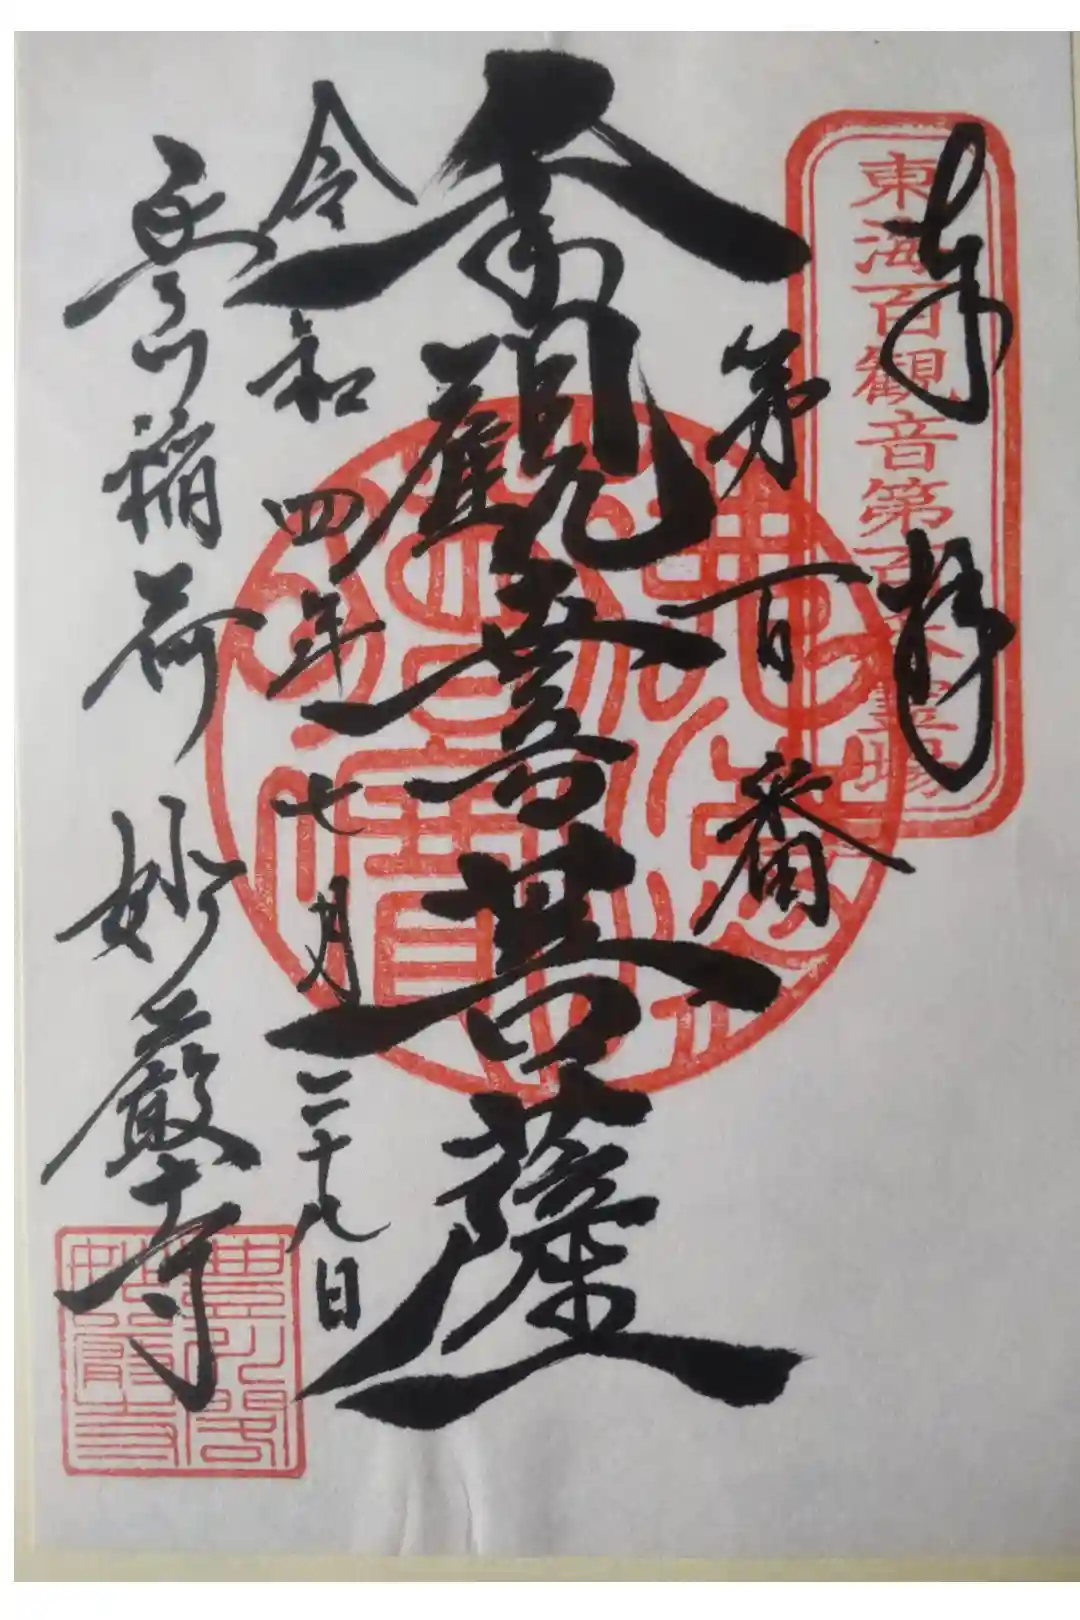 奉拝
東海百観音第百番霊場
第百番
千手觀世音菩薩
令和四年七月二十八日
豊川稲荷 妙厳寺
豊川閣
妙嚴寺